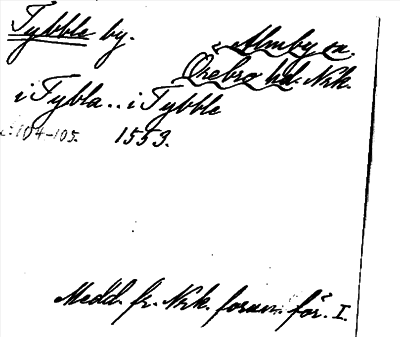 Tybble by.
Almby sn.
Örebro hd. Nrk.
i Tybla .. i Tybble
:104-105. 1553.
Medd. fr. Nrk. fornm. för. I.